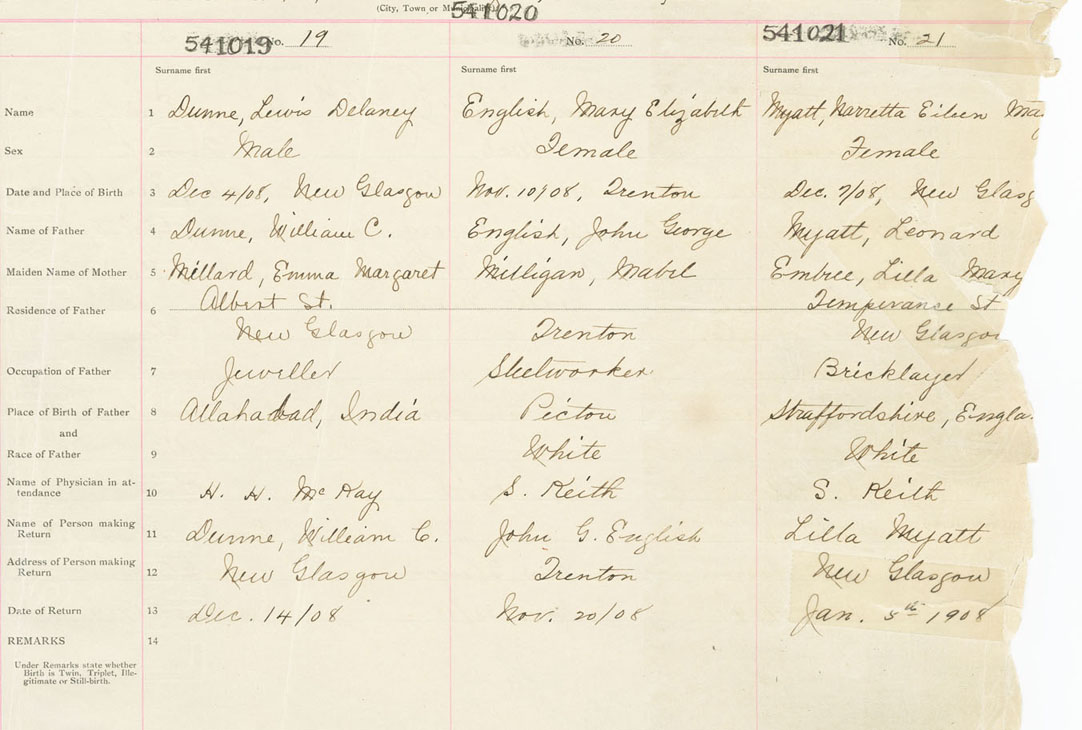 (City, Town or Municipality)
541019 No. 19 541020 No. 20 541021 No. 21
Surname first Surname first Surname first
Name 1 Dunne, Lewis Delaney English, Mary Elizabeth Myatt, Narretta Eileen
Sex 2 Male Female Female
Date and Place of Birth 3 Dec 4/08, New Glasgow Nov. 10/08, Trenton Dec. 7/08, New Glasg
Name of Father 4 Dunne, William C. English, John George Myatt, Leonard
Maiden Name of Mother 5 Millard, Emma Margaret Milligan, Mabel Embree, Lilla Mary
Albert St. Temperance St
Residence of Father 6
New Glasgow Trenton New Glasgow
Occupation of Father 7 Jeweller Steelworker Bricklayer
Place of Birth of Father 8 Allahabad, India Pictou Straffordshire, Engla
and
Race of Father 9 White White
Name of Physician in at-
tendance 10 H. H. McKay S. Keith S. Keith
Name of Person making
Return 11 Dunne, William C. John G. English Lilla Myatt
Address of Person making
Return 12 New Glasgow Trenton New Glasgow
Date of Return 13 Dec. 14/08 Nov. 20/08 Jan. 5th 1908
REMARKS 14
Under Remarks state whether
Birth is Twin, Triplet, Ille-
gitimate or Still-birth.